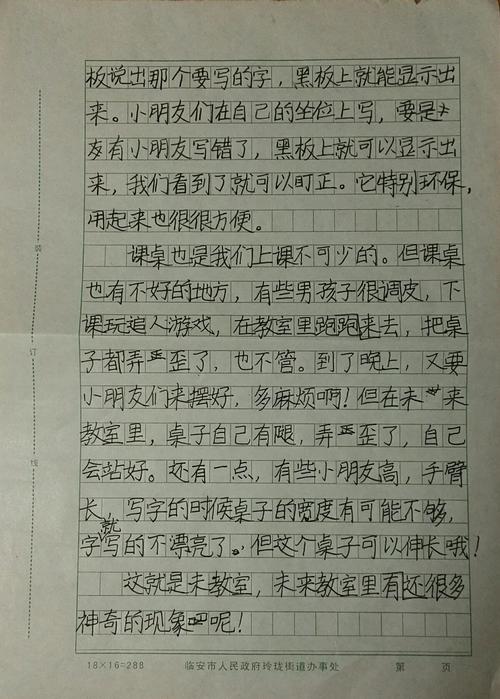 板说出那个要写的字，黑板上就能显示出
来。小朋友们在自己的坐位上写，要是
友有小朋友写错了，黑板上就可以显示出
来，我们看到了就可以盯正。它特别环保，
用起来也很很方便。
课桌也是我们上课不可少的。但课桌
也有不好的地方，有些男孩子很调皮，下
课玩追人游戏，在教室里跑跑来去，把桌
子都弄歪了，也不管。到了晚上，又要
小朋友们来摆好，多麻烦啊！但在未来
教室里，桌子自己有腿，弄歪了，自己
会站好。还有一点，有些小朋友高，手臂
长，写字的时候桌子的宽度有可能不够，
就
字写的不漂亮了。但这个桌子可以伸长哦！
这就是未教室，未来教室里有还很多
神奇的现象呢！
装
订
线
18×16=288 临安市人民政府玲珑街道办事处 第 页